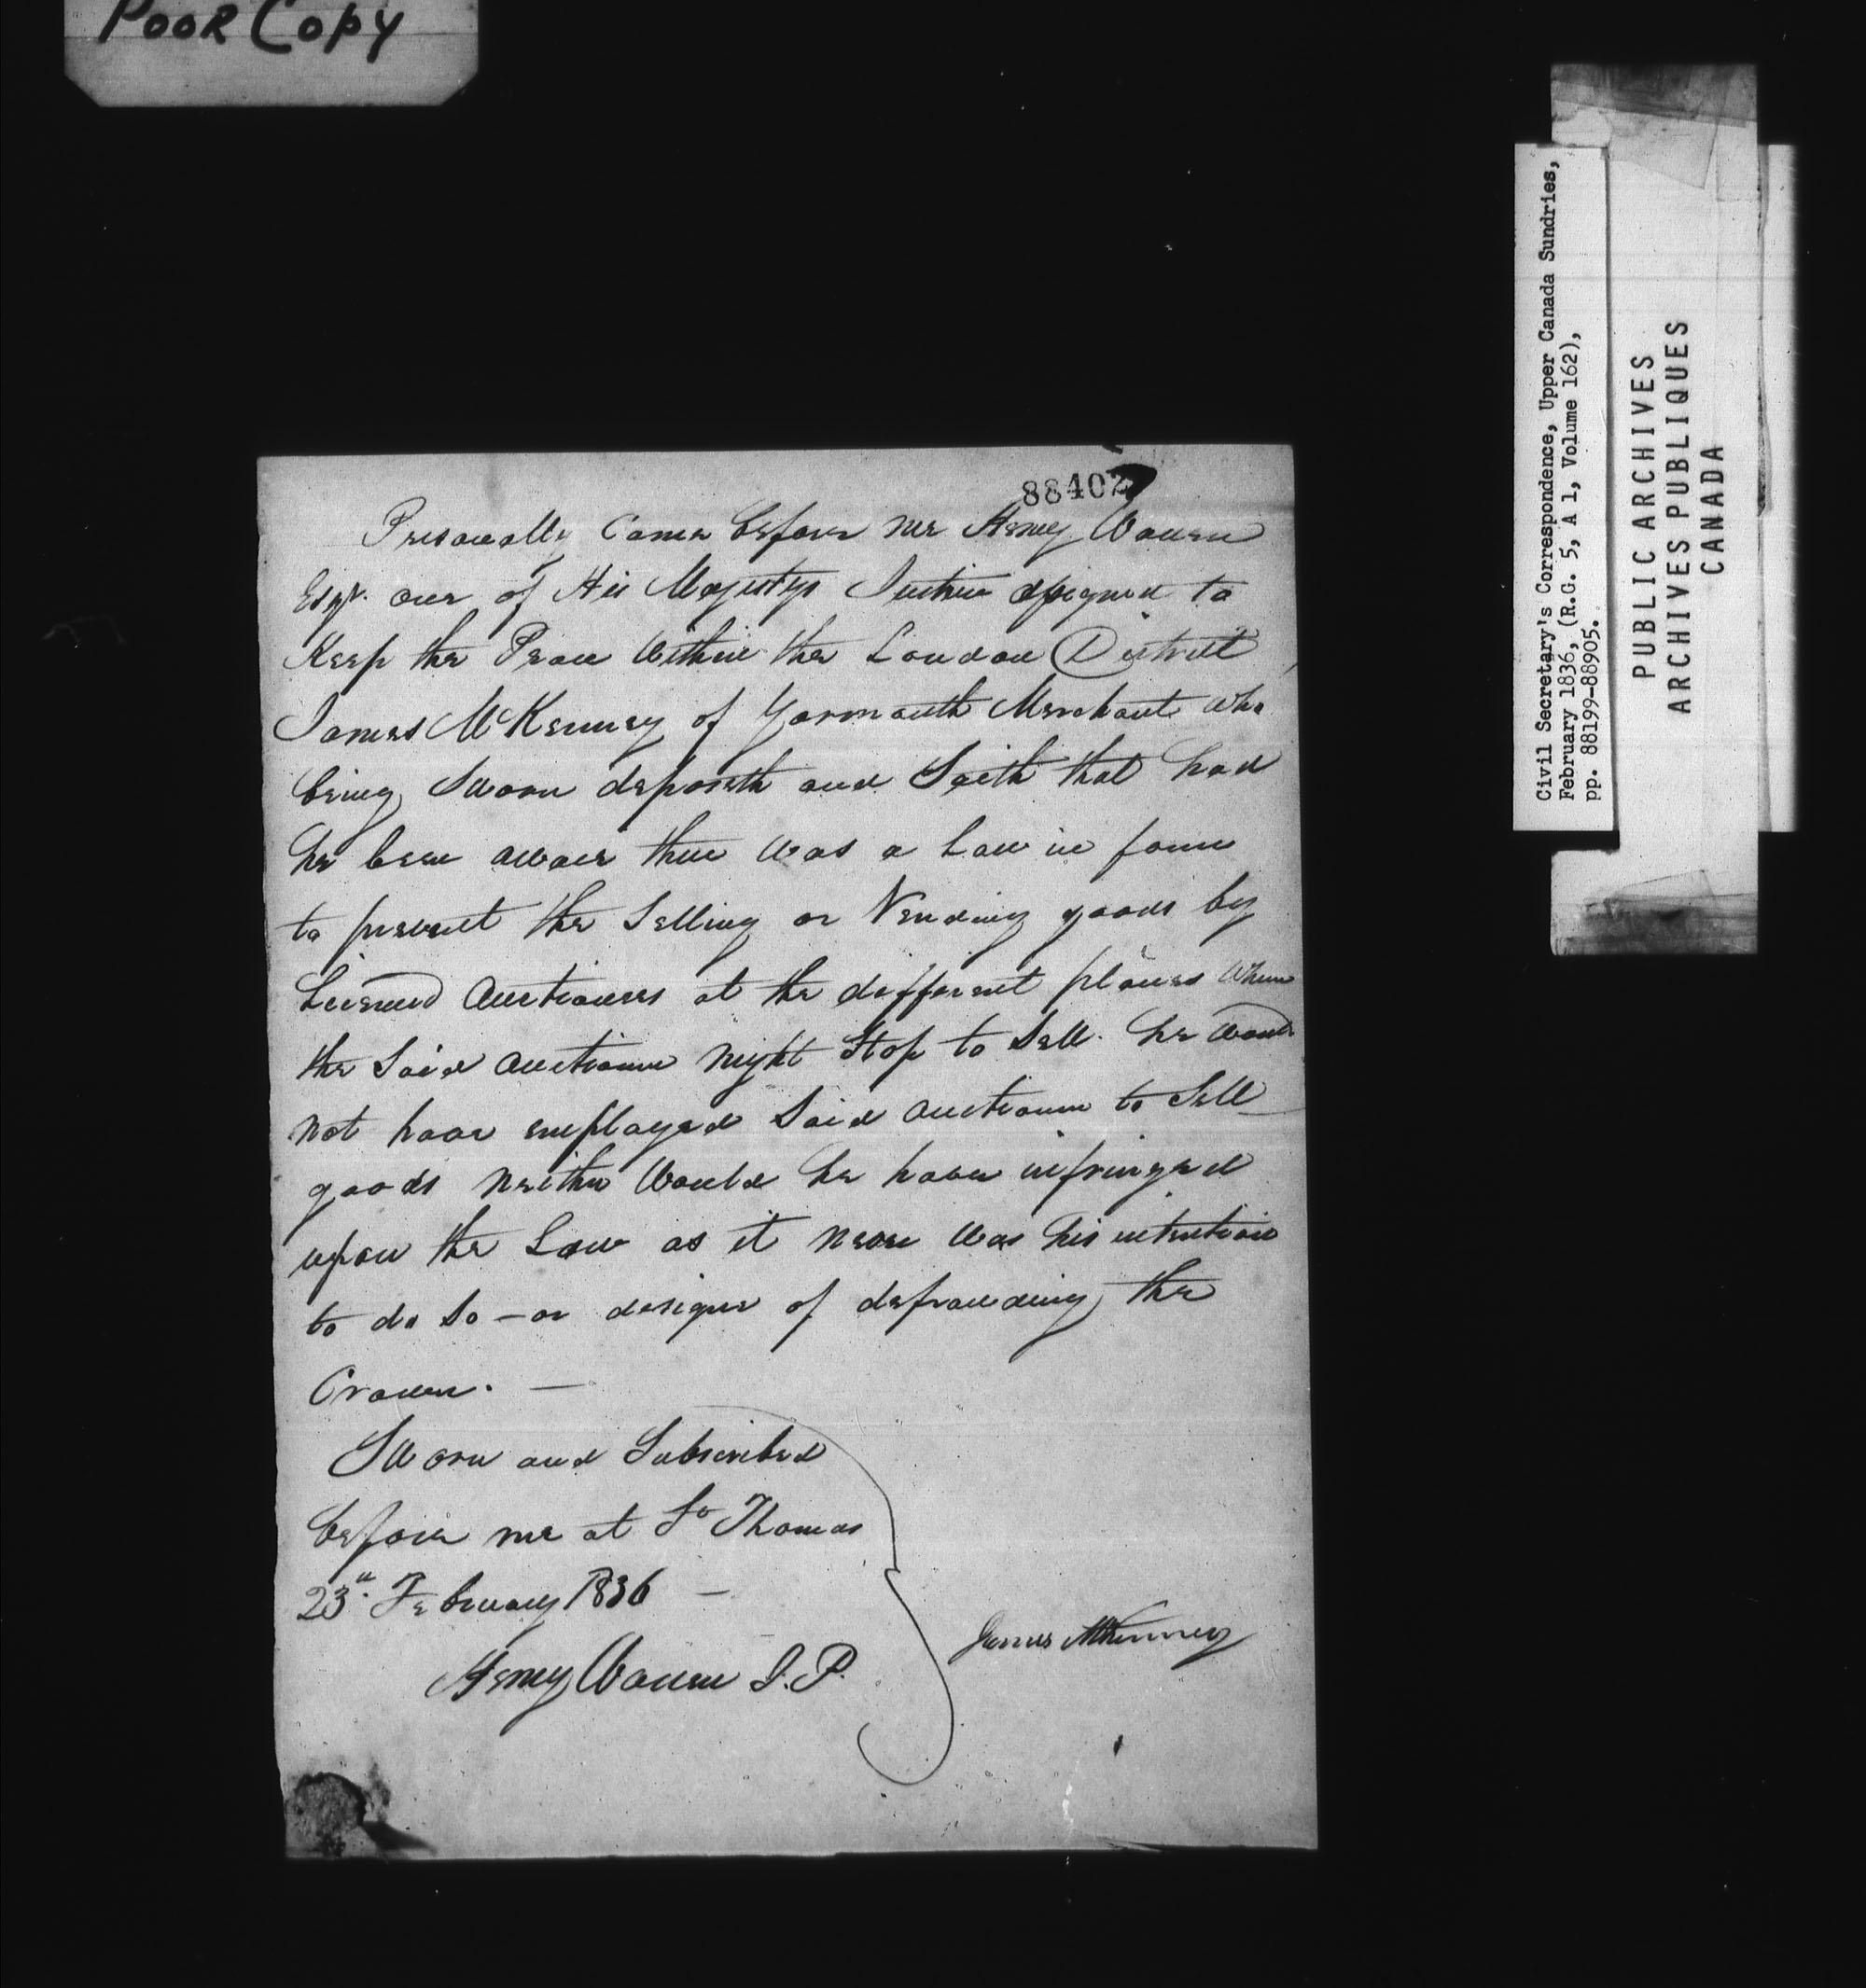 POOR COPY
88402
Personally Came before me Henry Warren
Esqr. one of His Majestys Justice assigned to
Keep the Peace within the London District
James McKenney of Yarmouth Merchant who
being Sworn deposeth and Saith that had
he been awair there was a Law in force
to prevent the Selling or Vending goods by
Licensed Auctioners at the different places Where
the Said auctioner might Stop to Sell. he would
not have employed Said auctioner to Sell
goods neither would he have infringed
upon the Law as it never was his intention
to do so - or designe of defrauding the
Crown. —
Sworn and Subscribed
before me at St Thomas
23d. February 1836 —
Henry Warren J.P.
James McKenney
Civil Secretary's Correspondence, Upper Canada Sundries,
February 1836, (R.G. 5, A 1, Volume 162),
pp. 88199-88905.
PUBLIC ARCHIVES
ARCHIVES PUBLIQUES
CANADA